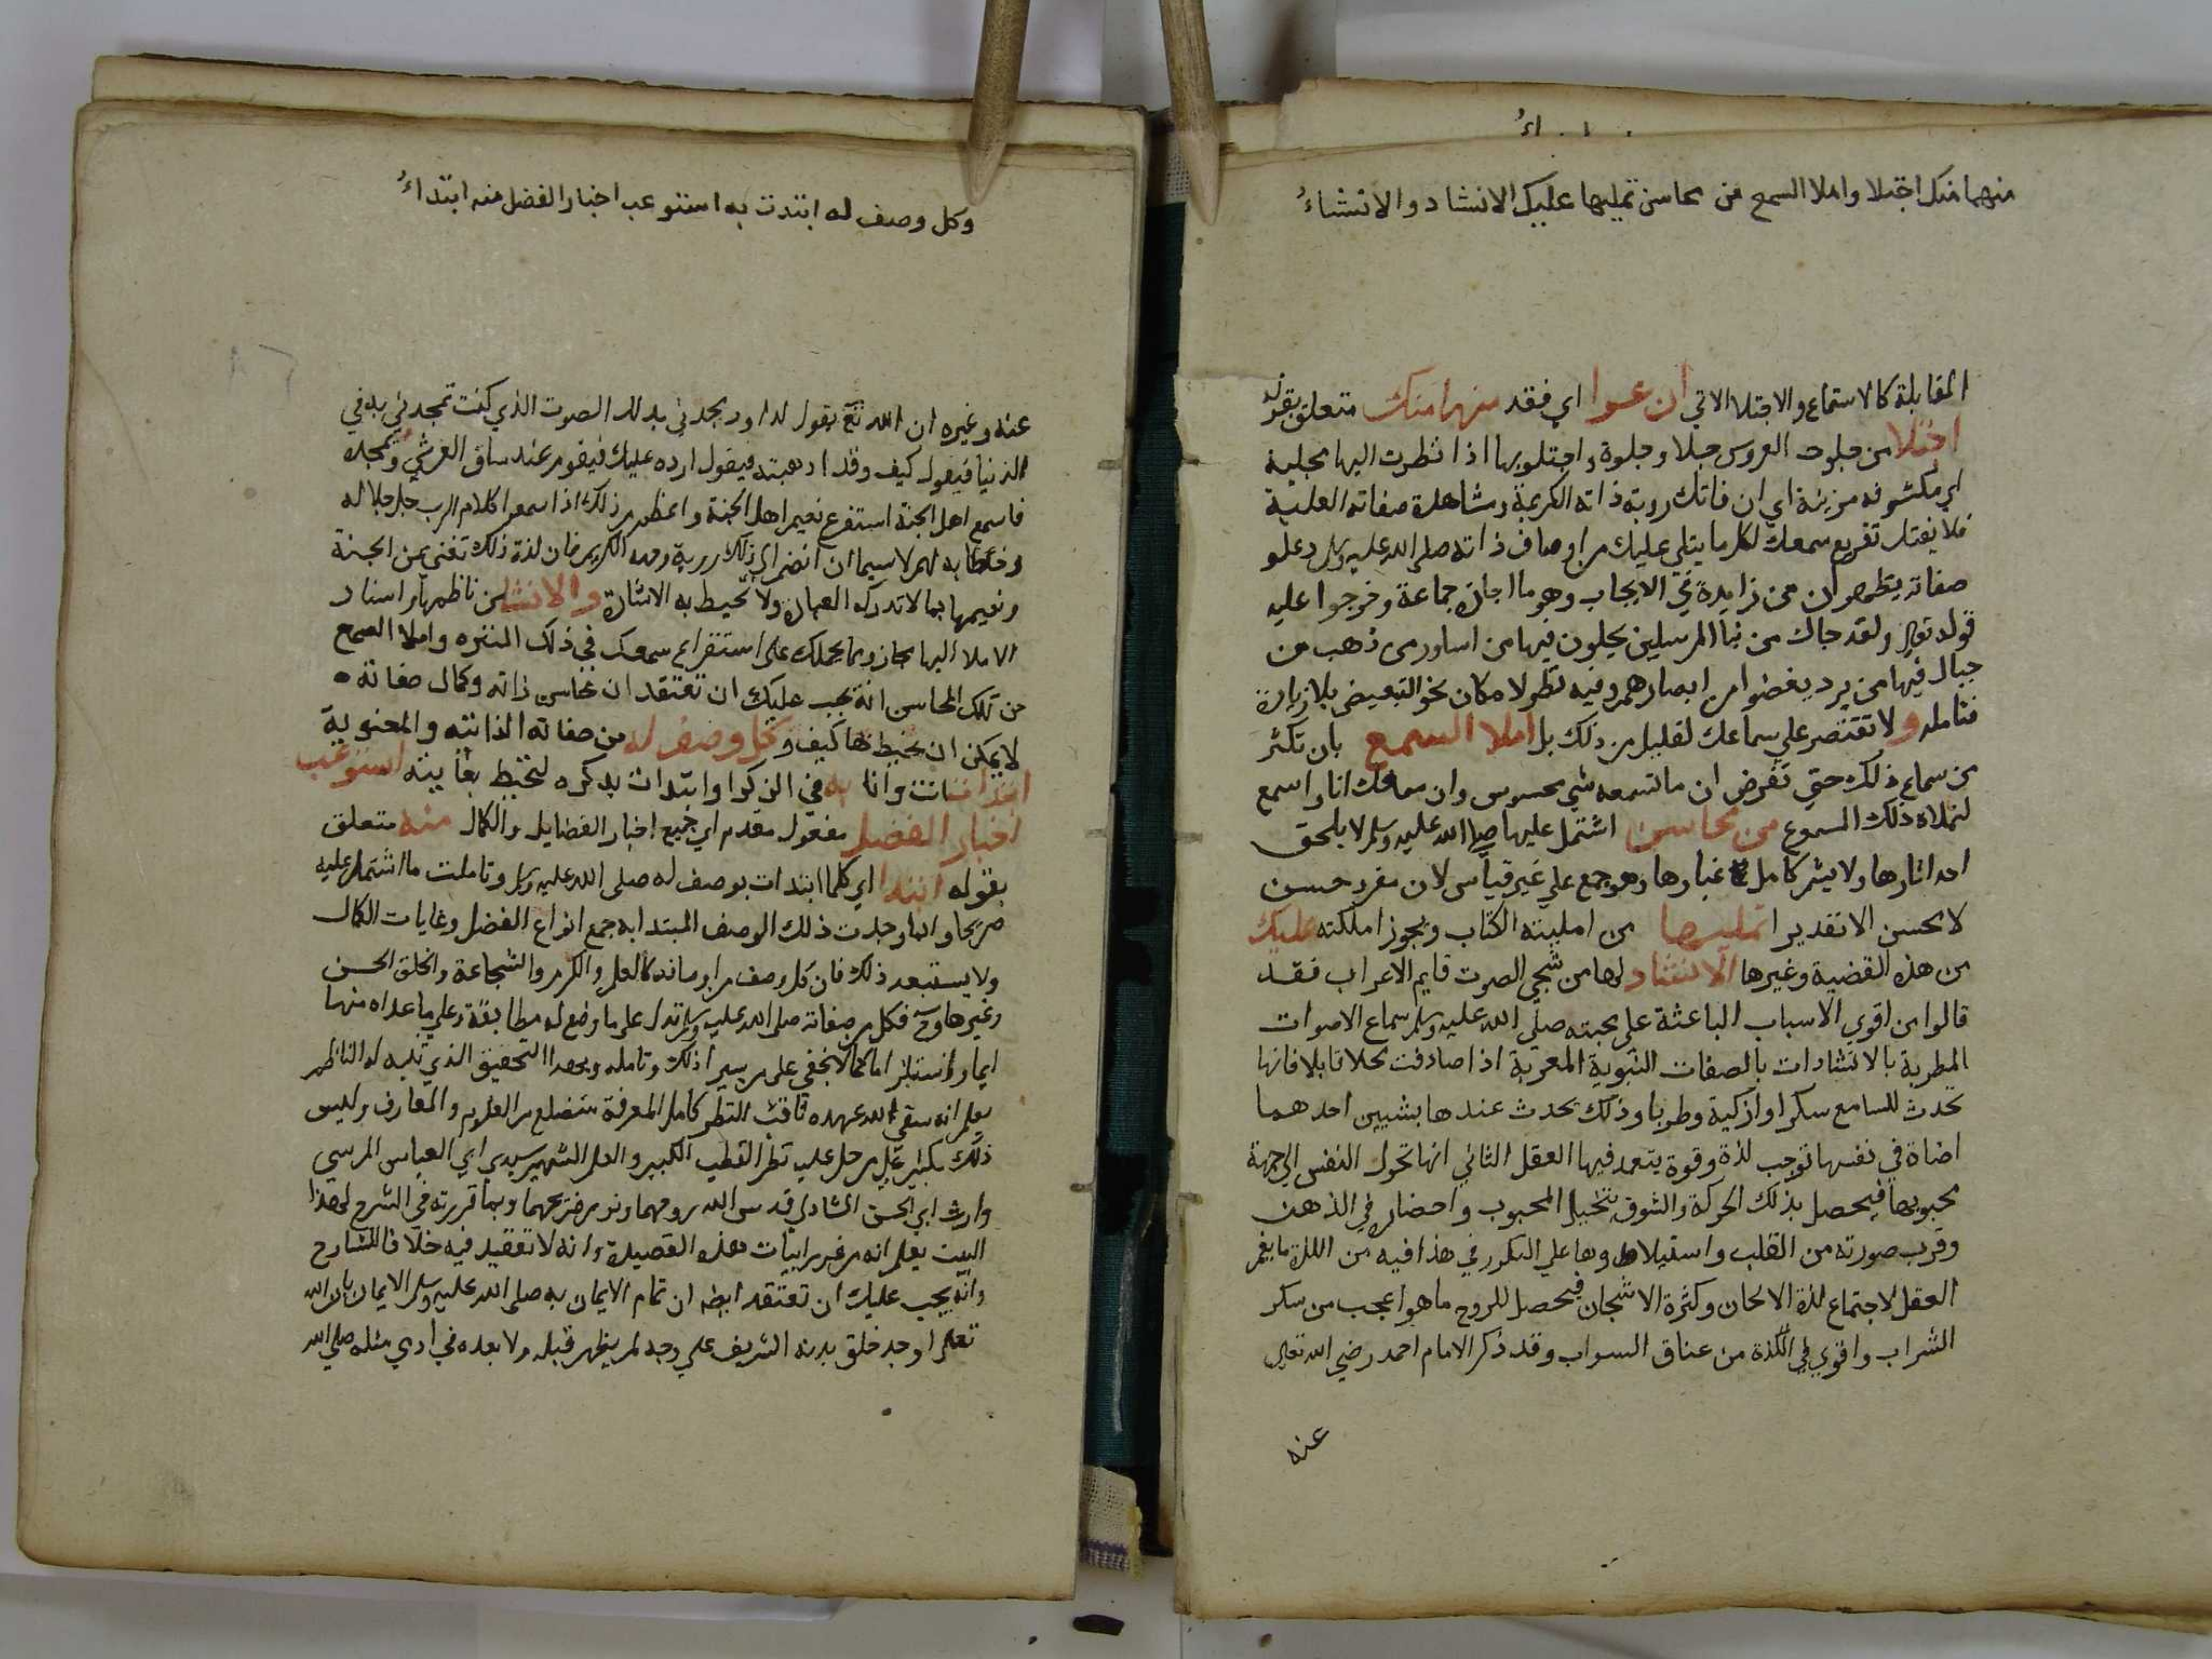 منهما منك اجتلا واملا السمع من محاسن تمليها عليك الانشاد والانشاءُ
المقابلة كالاستماع والاجتلا الاتي ان عـوا اي فقد منهما منك متعلق بقوله
اجتلا من جلوت العروس جلا وجلوة واجتلوبها اذا نظرت اليها مجلية
اي مكشوفه مزينة اي ان فاتك روية ذاته الكريمة ومشاهدة صفاته العلية
فلا يفتك تفريع سمعك لكل ما يتلي عليك من اوصاف ذاته صلى الله عليه وسلم وعلو
صفاته بنظم ان من زايدة في الايجاب وهو ما اجازه جماعة وخرجوا عليه
قوله تعالى ولقد جاك من نبا المرسلين يحلون فيها من اساور من ذهب من
جبال فيها من برد يغضوا من ابصارهم وفيه نظر لامكان نحو التبعيض بلا زيادة
فتامله ولا تقتصر علي سماعك لقليل من ذلك بل املا السمع بان تكثر
من سماع ذلك حتي تفرض ان ما تسمعه شي محسوس وان سمعك انا واسع
لتملاه ذلك المسموع من محاسن اشتمل عليها صلى الله عليه وسلم لا يلحق
احد اثارها ولا يشم كامل غبارها وهو جمع علي غير قياس لان مفرد حسن
لا محسن الا تقديرا تمليها من امليته الكتاب ويجوز امللته عليك
من هذه القضية وغيرها الانشاد لها من شجي الصوت قايم الاعراب فقد
قالوا من اقوي الاسباب الباعثة علي محبته صلي الله عليه وسلم سماع الاصوات
المطربة بالانشادات بالصفات النبوية المعربة اذا صادفت محلا قابلا فانها
تحدث للسامع سكرا واريحية وطربا وذلك يحدث عندها بشيين احدهما
انها في نفسها توجب لذة وقوة يتعمد فيها العقل الثاني انها تحرك النفس الي جهة
محبوبها فيحصل بذلك الحركة والشوق بتخيل المحبوب واحضاره في الذهن
وقرب صورته من القلب واستيلاها علي الفكر في هذا فيه من اللذة ما يغمر
العقل لاجتماع لذة الالحان وكثرة الاشجان فيحصل للروح ما هو اعجب من سكر
الشراب واقوي في اللذة من عناق الشواب وقد ذكر الامام احمد رضي الله تعالى
عنه
وكل وصف له ابتدت به استوعب اخبار الفضل منه ابتداءُ
عنه وغيره ان الله تع يقول لداود مجدني بذلك الصوت الذي كنت تمجدني به في
الدنيا فيقول كيف وقد اذهبته فيقول ارده عليك فيقوم عند ساق العرش ويمجده
فاسمع اهل الجنة استفرع نعيم اهل الجنة واعظم من ذلك اذا سمعوا كلام الرب جل جلاله
وخطابه لهم لا سيما ان انضم الي ذلك روية وجهه الكريم فان لذة ذلك تغني عن الجنة
ونعيمها بما لا تدركه العبارة ولا تحيط به الاشارة والانشا من ناظمها واسناد
الاملا اليها مجاز وما يحملك علي استفراغ سمعك في ذلك المنتزه واملا السمع
من تلك المحاسن انه يجب عليك ان تعتقد ان محاسن ذاته وكمال صفاته
لا يمكن ان يحيط بها كيف وكل وصف له من صفاته الذاتية والمعنوية
ابتدات انت وانا به في الذكر او ابتدات بذكره لتحيط بغايته استوعب
اخبار الفضل مفعول مقدم اي جميع اخبار الفضايل والكمال منه متعلق
بقوله ابتدا اي كلما ابتدات بوصف له صلى الله عليه وسلم وتاملت ما اشتمل عليه
صريحا وايما وجدت ذلك الوصف المبتدا به جمع انواع الفضل وغايات الكمال
ولا يستبعد ذلك فان كل وصف من اوصافه كالعلم والكرم والشجاعة والخلق الحسن
وغيرها وح فكل من صفاته صلى الله عليه وسلم تدل علي ما وضع له مطابقة وعلي ما عداه منها
ايما واستلزاما كما لا يخفي علي من سبر ذلك وتامله وبهذا التحقيق الذي تنبه له الناظم
يعلم انه سقي الله عهده ثاقب النظر كامل المعرفة متضلع من العلوم والمعارف وليس
ذلك بكثير علي من حل عليه نظر القطب الكبير والعلم الشهير سيدي ابي العباس المرسي
وارث ابي الحسن الشاذلي قدس الله روحهما ونور ضريحهما وبما قررته في الشرح لهذا
البيت يعلم انه من غرر ابيات هذه القصيدة وانه لا تعقيد فيه خلافا للشارح
وانه يجب عليك ان تعتقد ايضا ان تمام الايمان به صلى الله عليه وسلم الايمان بان الله
تعالى اوجد خلق بدنه الشريف علي وجه لم يظهر قبله ولا بعده في ادمي مثله صلي الله